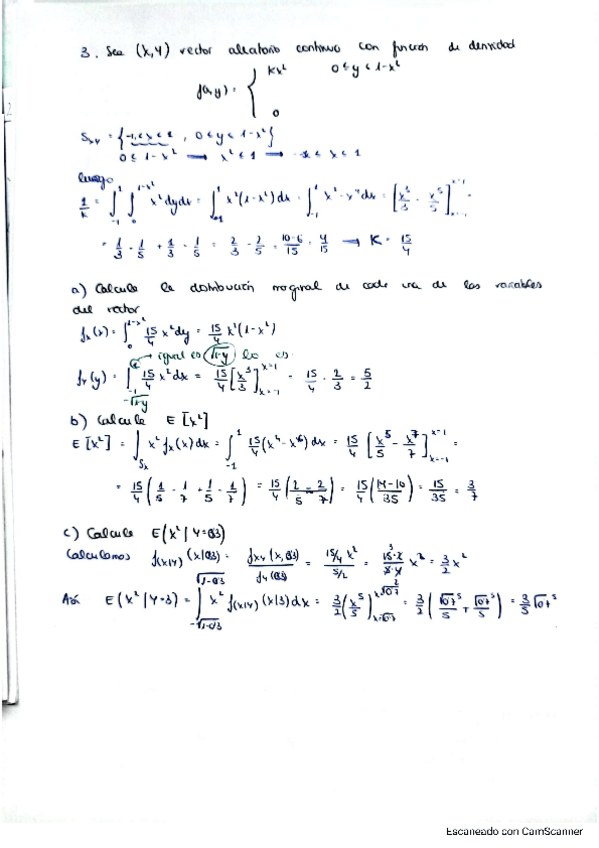 3. Sea (X,Y) vector aleatorio continuo con función de densidad
f(x,y) = { kx² 0 ≤ y ≤ 1-x²
0
Sxy = {-1 ≤ x ≤ 1, 0 ≤ y ≤ 1-x²}
0 ≤ 1-x² → x² ≤ 1 → -1 ≤ x ≤ 1
luego
1/k = ∫_{-1}^{1} ∫_0^{1-x²} x² dy dx = ∫_{-1}^{1} x²(1-x²) dx = ∫_{-1}^{1} x² - x⁴ dx = [x³/3 - x⁵/5]_{x=-1}^{x=1} =
= 1/3 - 1/5 + 1/3 - 1/5 = 2/3 - 2/5 = 10-6/15 = 4/15 → K = 15/4
a) Calcule la distribución marginal de cada una de las variables
del vector
fx(x) = ∫_0^{1-x²} 15/4 x² dy = 15/4 x²(1-x²)
igual es √1-y lo es
fy(y) = ∫_{-1}^{1} 15/4 x² dx = 15/4 [x³/3]_{x=-1}^{x=1} = 15/4 · 2/3 = 5/2
-√1-y
b) Calcule E[x²]
E[x²] = ∫_{Sx} x² fx(x) dx = ∫_{-1}^{1} 15/4 (x⁴ - x⁶) dx = 15/4 [x⁵/5 - x⁷/7]_{x=-1}^{x=1} =
= 15/4 (1/5 - 1/7 + 1/5 - 1/7) = 15/4 (2/5 - 2/7) = 15/4 (14-10/35) = 15/35 = 3/7
c) Calcule E(x² | Y=0,3)
Calculamos f(x|y) (x|0,3) = fxy (x, 0,3)/fy (0,3) = 15/4 x²/5/2 = 15·2/5·4 x² = 3/2 x²
Así E(x² | Y=3) = ∫_{-√1-0,3}^{√1-0,3} x² f(x|y) (x|3) dx = 3/2 (x⁵/5)_{x=-√0,7}^{x=√0,7} = 3/2 (√0,7⁵/5 + √0,7⁵/5) = 3/5 √0,7⁵
Escaneado con CamScanner